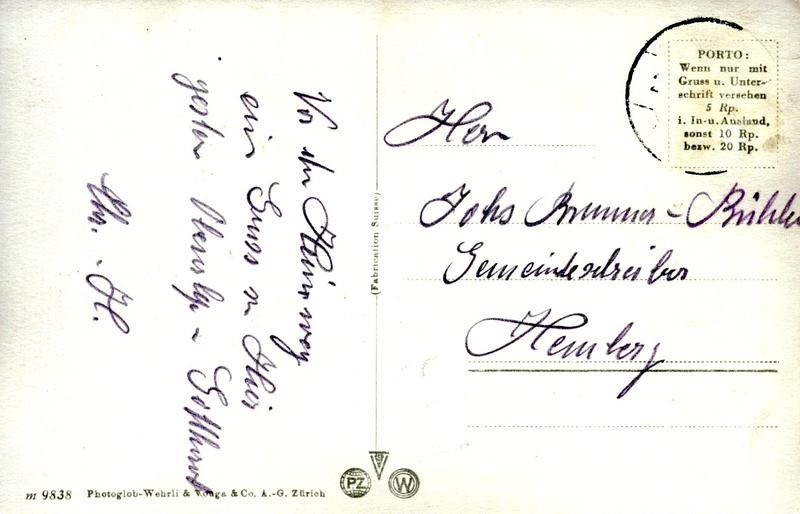 Vor dem Heimweg
ein Gruss von Hier
gestern Oberalp u Gotthard
Chr. H.
(Fabrication Suisse)
PORTO:
Wenn nur mit
Gruss u. Unter-
schrift versehen
5 Rp.
i. In- u. Ausland,
sonst 10 Rp.
bezw. 20 Rp.
Herrn
Johs Brunner - Bühler
Gemeindeschreiber
Hemberg
m 9838 Photoglob-Wehrli & Vouga & Co. A.-G. Zürich
PZ
W